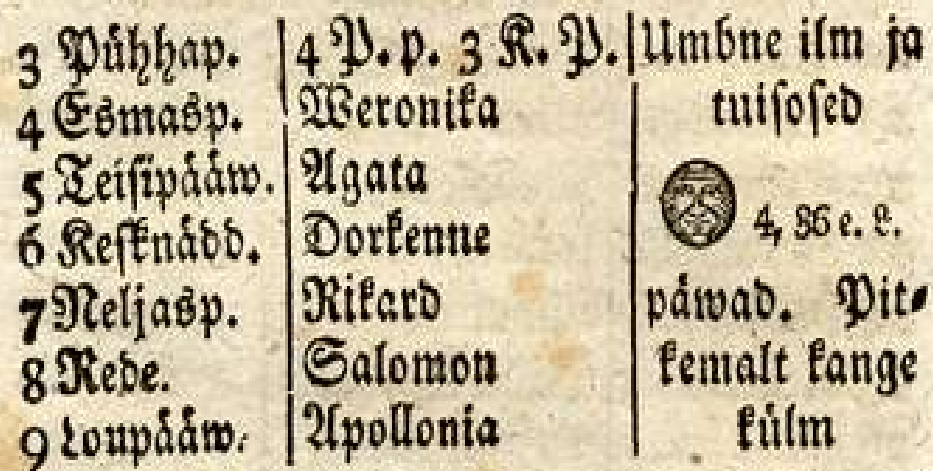 3 Pühhap. 4 P. p. 3 K. P. Umbne ilm ja
4 Esmasp. Weronika tuisosed
5 Teisipääw. Agata
6 Keſknädd. Dorkenne 4, 36 e. L.
7 Neljasp. Rikard päwad. Pit-
8 Rede. Salomon kemalt kange
9 Loupääw. Apollonia külm